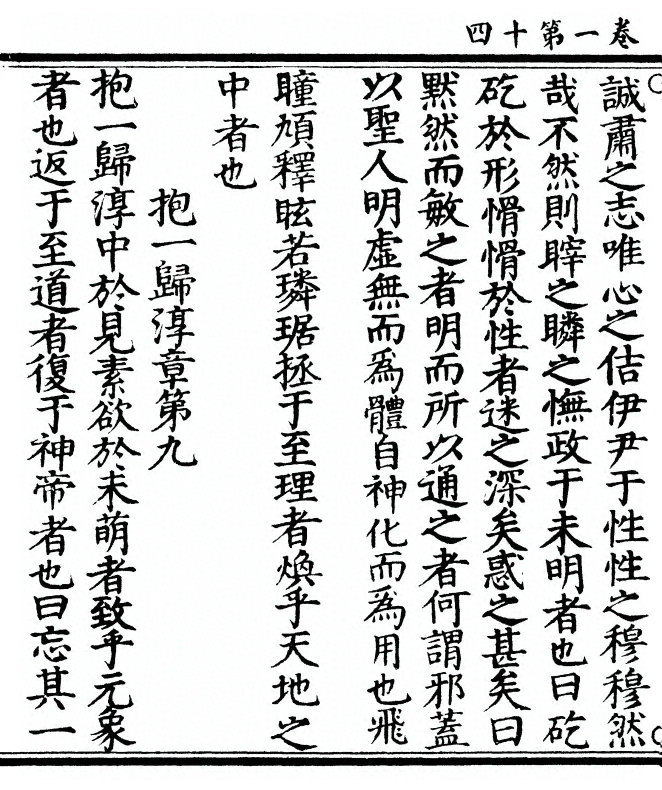 卷一第十四
誠肅之志唯心之佶伊尹于性性之穆穆然
哉不然則睟之瞵之憮政于未明者也曰矻
矻於形愲愲於性者迷之深矣惑之甚矣曰
默然而敏之者明而所以通之者何謂邪蓋
以聖人明虛無而為體自神化而為用也飛
瞳頄釋眩若璘琚拯于至理者煥乎天地之
中者也
抱一歸淳章第九
抱一歸淳中於見素欲於未萌者致乎元象
者也返于至道者復于神帝者也曰忘其一